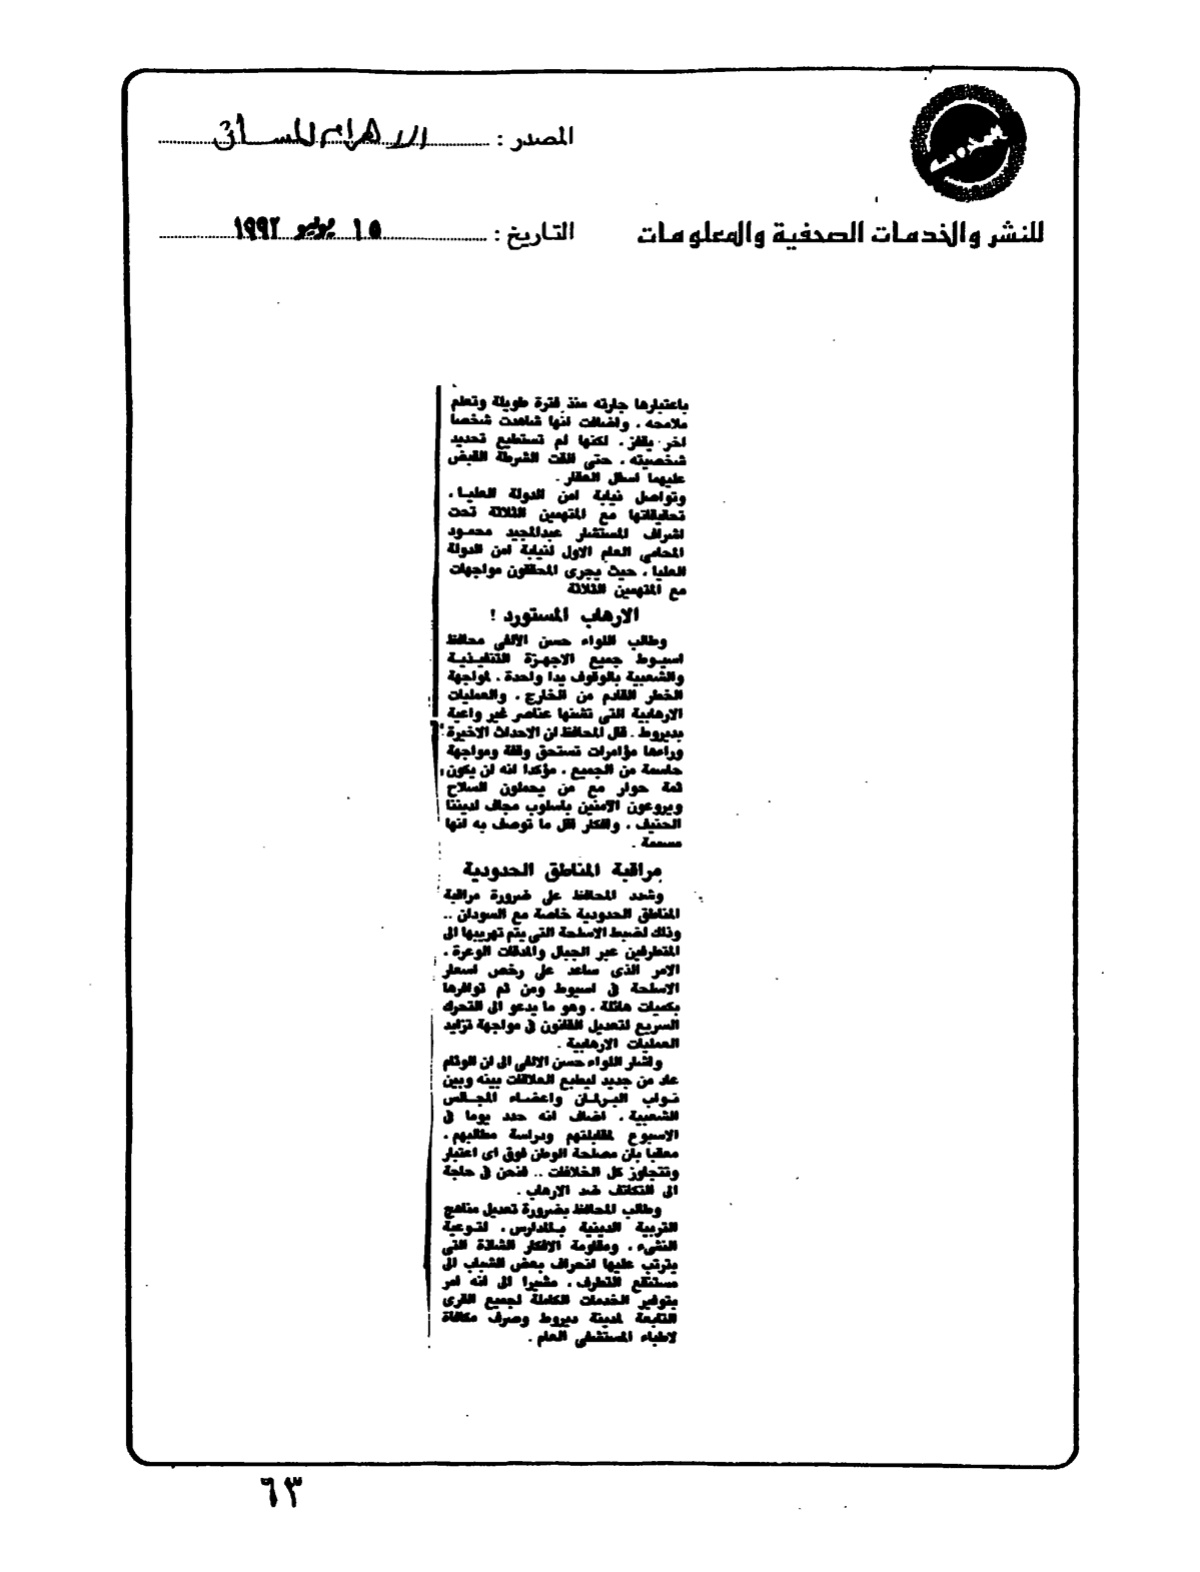 المصدر : الاهرام المسائى
للنشر والخدمات الصحفية والمعلومات
التاريخ : ١٥ يونيو ١٩٩٢
باعتبارها جارته منذ فترة طويلة وتعلم
ملامحه . واضافت انها شاهدت شخصا
اخر يقفز . لكنها لم تستطيع تحديد
شخصيته . حتى القت الشرطة القبض
عليهما اسفل العقار .
وتواصل نيابة امن الدولة العليا .
تحقيقاتها مع المتهمين الثلاثة تحت
اشراف المستشار عبدالمجيد محمود
المحامى العام الاول لنيابة امن الدولة
العليا . حيث يجرى المحققون مواجهات
مع المتهمين الثلاثة
الارهاب المستورد !
وطالب اللواء حسن الألفى محافظ
اسيوط جميع الاجهزة التنفيذية
والشعبية بالوقوف يدا واحدة . لمواجهة
الخطر القادم من الخارج . والعمليات
الارهابية التى تشنها عناصر غير واعية
بديروط . قال المحافظ ان الاحداث الاخيرة
وراءها مؤامرات تستحق وقفة ومواجهة
حاسمة من الجميع . مؤكدا انه لن يكون
ثمة حوار مع من يحملون السلاح
ويروعون الآمنين باسلوب مجاف لديننا
الحنيف . وافكار اقل ما توصف به انها
مسممة .
مراقبة المناطق الحدودية
وشدد المحافظ على ضرورة مراقبة
المناطق الحدودية خاصة مع السودان ..
وذلك لضبط الاسلحة التى يتم تهريبها الى
المتطرفين عبر الجبال والمدقات الوعرة .
الامر الذى ساعد على رخص اسعار
الاسلحة فى اسيوط ومن ثم توافرها
بكميات هائلة . وهو ما يدعو الى التحرك
السريع لتعديل القانون فى مواجهة تزايد
العمليات الارهابية .
واشار اللواء حسن الالفى الى ان الوئام
عاد من جديد ليطبع العلاقات بينه وبين
نواب البرلمان واعضاء المجالس
الشعبية . اضاف انه حدد يوما فى
الاسبوع لمقابلتهم ودراسة مطالبهم .
معقبا بان مصلحة الوطن فوق اى اعتبار
وتتجاوز كل الخلافات .. فنحن فى حاجة
الى التكاتف ضد الارهاب .
وطالب المحافظ بضرورة تعديل مناهج
التربية الدينية بالمدارس . لتوعية
النشىء . ومقاومة الافكار الشاذة التى
يترتب عليها انحراف بعض الشباب الى
مستنقع التطرف . مشيرا الى انه امر
بتوفير الخدمات الكاملة لجميع القرى
التابعة لمدينة ديروط وصرف مكافاة
لاطباء المستشفى العام .
٦٣